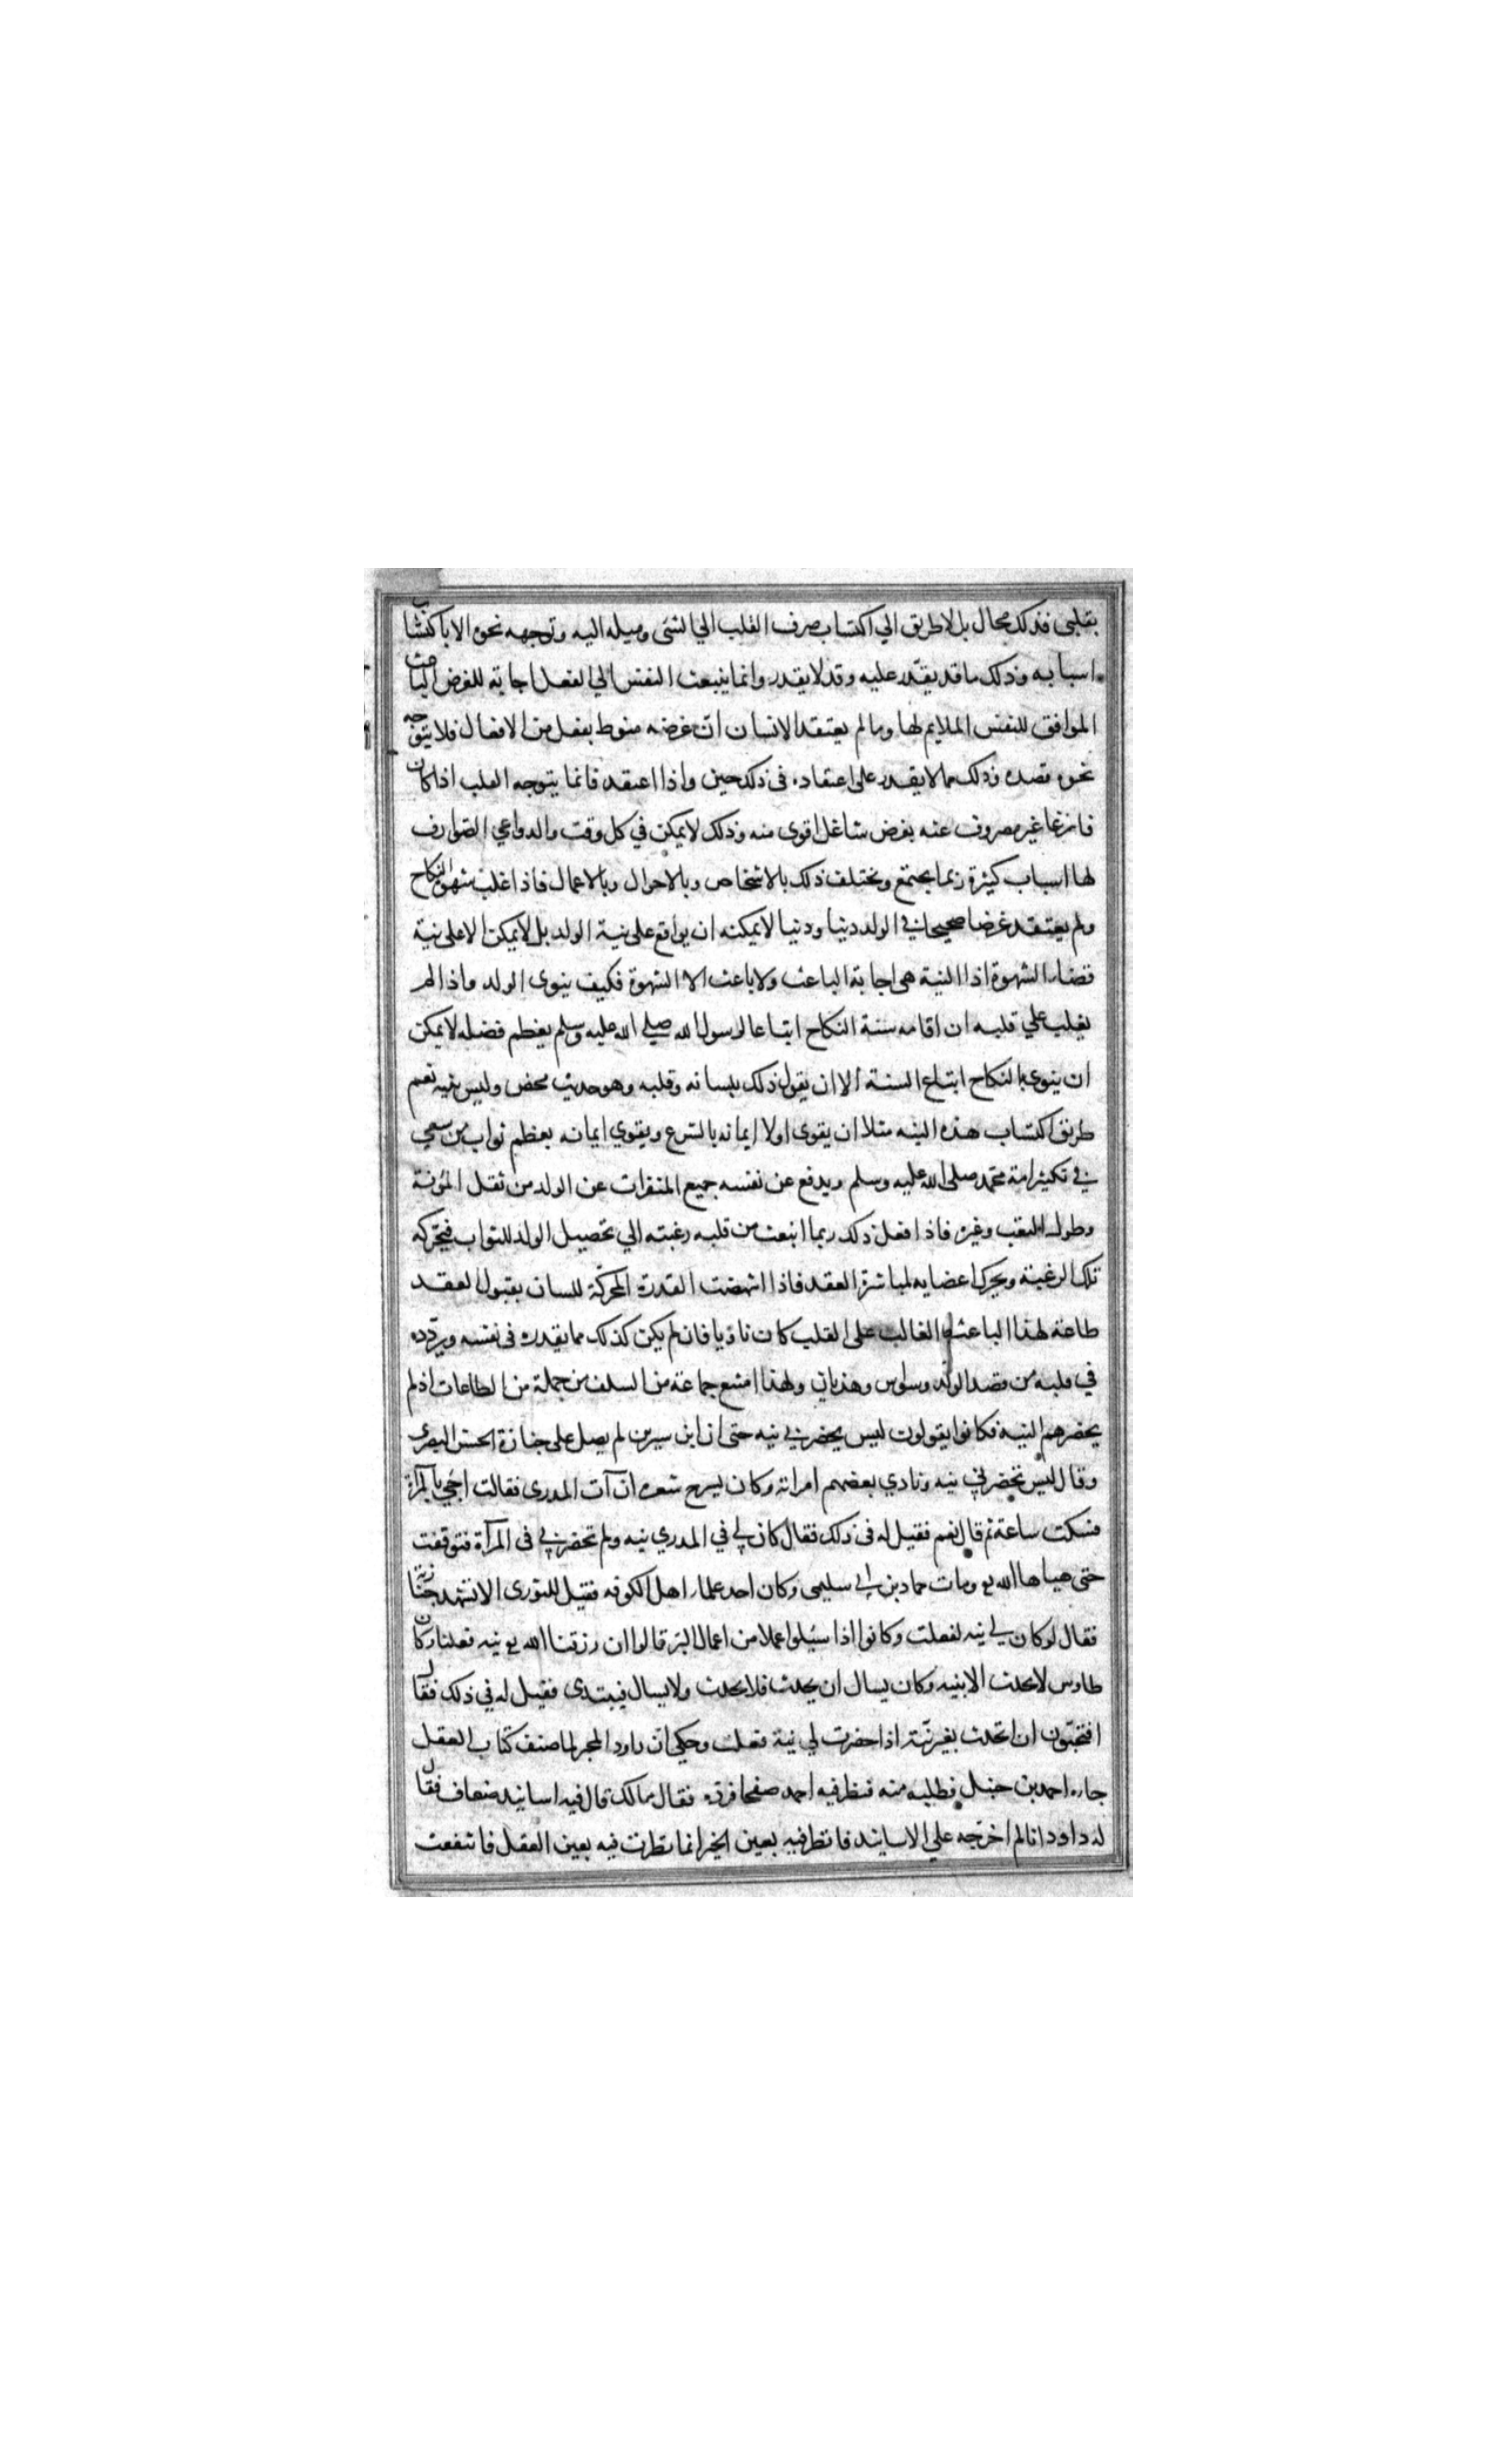 بقلبى فذلك محال بل لا طريق الي اكتساب صرف القلب الي الشئ وميله اليه وتوجهه نحوه الا باكتساب
اسبابه وذلك ما قد يقدر عليه وقد لا يقدر وانما ينبعث النفس الي الفعل اجابة للغرض الباعث
الموافق للنفس الملايم لها وما لم يعتقد الانسان انّ غرضه منوط بفعل من الافعال فلا يتوجه
نحوه قصده وذلك مما لا يقدر على اعتقاده فى ذلك حين واذا اعتقد فانما يتوجه القلب اذا كان
فارغا غير مصروف عنه بغرض شاغل اقوى منه وذلك لا يمكن في كل وقت والدواعي الصوارف
لها اسباب كثيرة بها يجتمع ويختلف ذلك بالاشخاص وبالاحوال وبالاعمال فاذا غلب شهوة النكاح
ولم يعتقد غرضا صحيحا في الولد دينا ودنيا لا يمكنه ان يواقع على نية الولد بل لا يمكن الا على نية
قضاء الشهوة اذ النية هى اجابة الباعث ولا باعث الا الشهوة فكيف ينوى الولد واذا لم
يغلب علي قلبه ان اقامه سنة النكاح اتباعا لرسول الله صلى الله عليه وسلم يعظم فضله لا يمكن
ان ينوى بالنكاح اتباع السنة الا ان يقول ذلك بلسانه وقلبه وهو حديث محض وليس بنيه نعم
طريق اكتساب هذه النيه مثلا ان يقوى اولا ايمانه بالشرع ويقوي ايمانه بعظم ثواب من سعي
في تكثير امة محمّد صلى الله عليه وسلم ويدفع عن نفسه جميع المنفرات عن الولد من ثقل المؤنة
وطول التعب وغيره فاذا فعل ذلك ربما انبعث من قلبه رغبته الي تحصيل الولد للثواب فيحركه
تلك الرغبة ويحرك اعضايه لمباشرة العقد فاذا انتهضت القدرة المحركة للسان بقبول العقد
طاعة لهذا الباعث الغالب على القلب كان ناويا فان لم يكن كذلك مما يقدره فى نفسه ويردّده
في قلبه من قصد الولد وسواس وهذيان ولهذا امتنع جماعة من السلف من جملة من الطاعات اذ لم
يحضرهم النيه فكانوا يقولون ليس يحضرني نيه حتى ان ابن سيرين لم يصل على جنازة الحسن البصرى
وقال ليس تحضرني نيه ونادي بعضهم امراته وكان يسرح شعره ان آت المدرى فقالت اجئ بالمرآة
فسكت ساعة ثم قال نعم فقيل له فى ذلك فقال كان لي في المدري نيه ولم تحضرني فى المرآة فتوقفت
حتى هياها الله تع ومات حماد بن ابي سليمى وكان احد علماء اهل الكوفه فقيل للثورى الا تشهد جنازته
فقال لو كان لي نيه لفعلت وكانوا اذا سئلوا عملا من اعمال البرّ قالوا ان رزقنا الله تع نيه فعلنا وكان
طاوس لا يحدث الا بنيه وكان يسال ان يحدث فلا يحدث ولا يسال فيبتدى فقيل له في ذلك فقال
افتحبّون ان احدّث بغير نيّة اذا حضرت لي نية فعلت وحكي انّ داود المحبر لما صنف كتاب العقل
جاءه احمد بن حنبل فطلبه منه فنظر فيه احمد صفحا فرده فقال مالك قال فيه اسانيد ضعاف فقال
له داود انا لم اخرّجه علي الاسانيد فانظر فيه بعين الخبر انما نظرت فيه بعين العقل فانتفعت